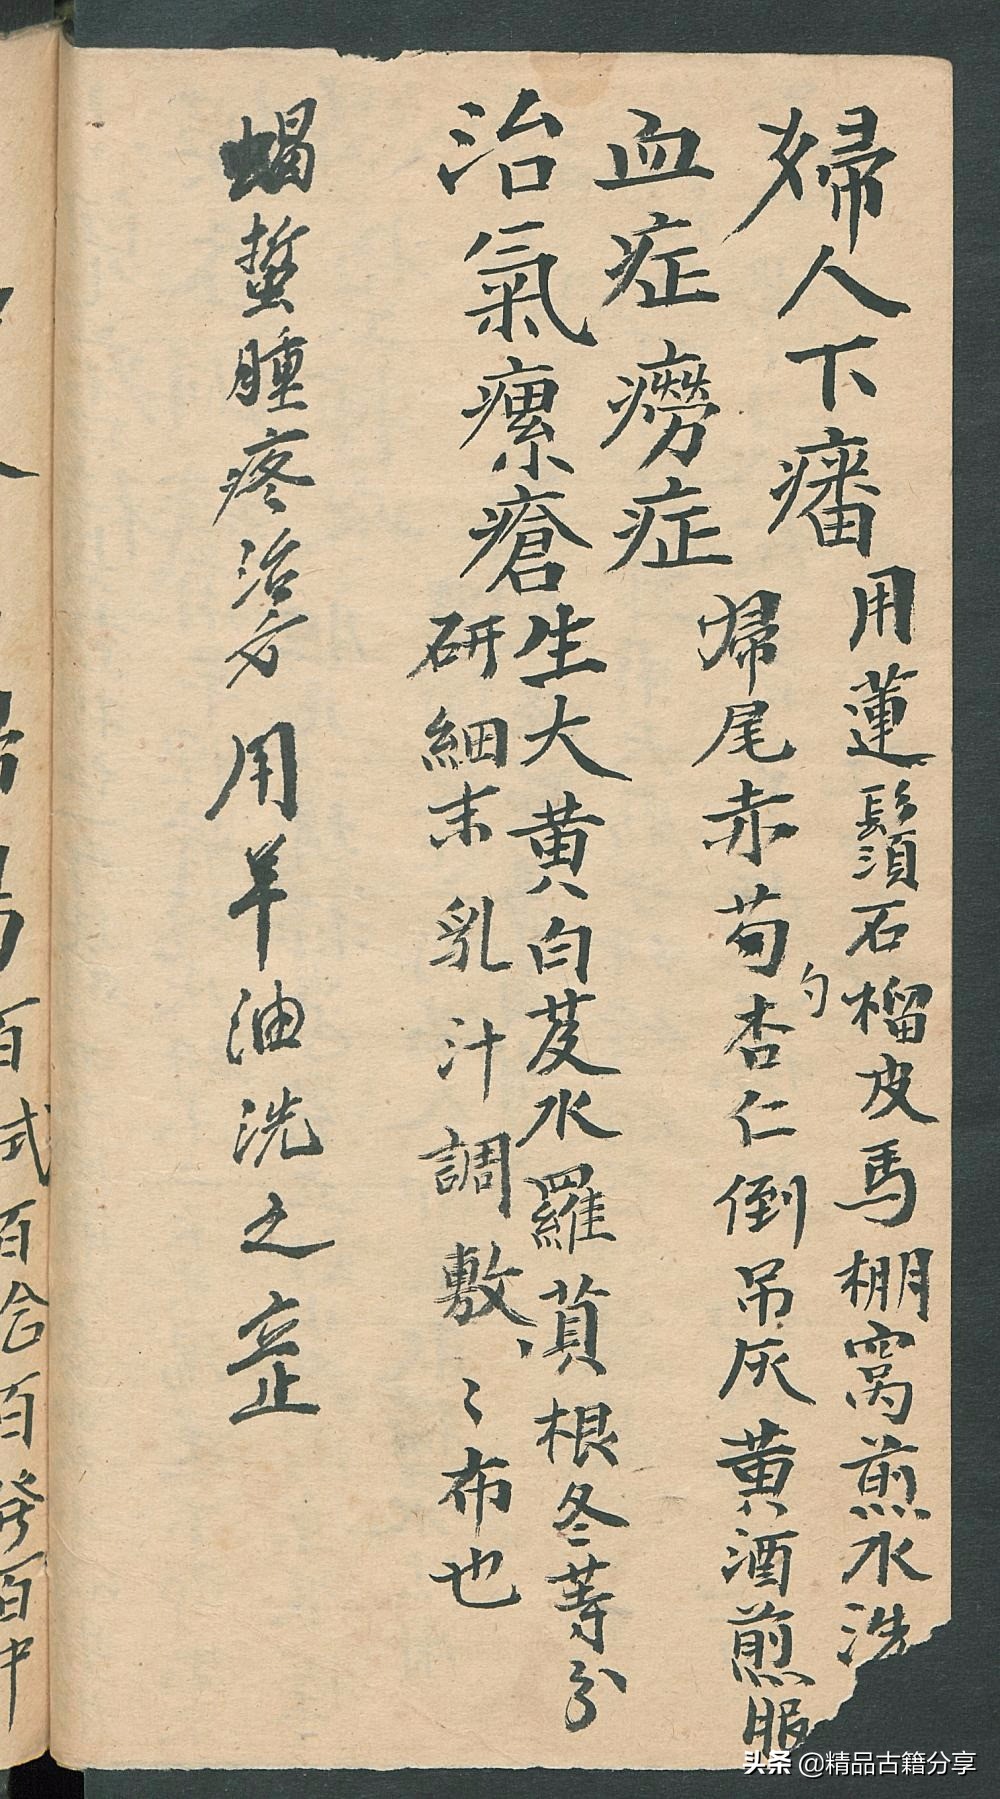 婦人下㿔用蓮鬚石榴皮馬棚窩煎水洗
血症癆症歸尾赤芍勺杏仁倒吊灰黄酒煎服
治氣瘰瘡生大黄白芨水羅蔔根冬等分
研細末乳汁調敷〻布也
蝎蜇腫疼治方用羊油洗之立止
百式百念百發百中
头条 @精品古籍分享